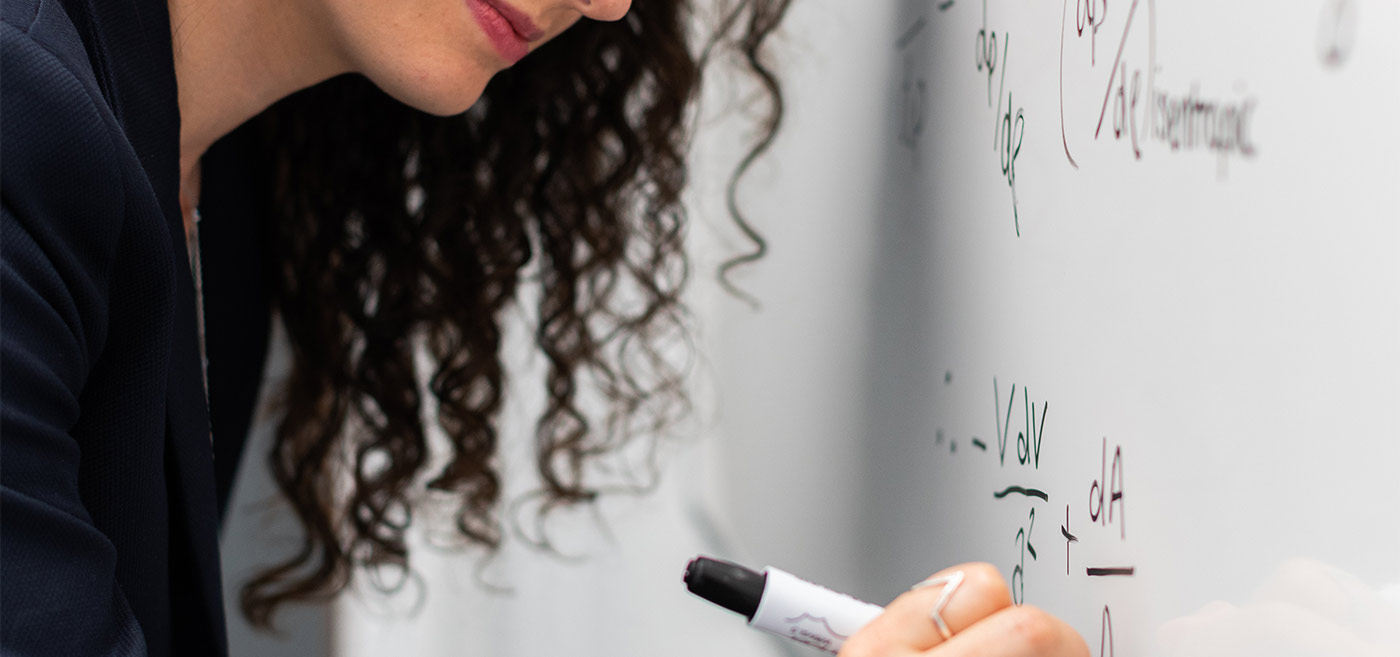 dp/dρ
(dp/dρ)isentropic
∴ - VdV/a² + dA/A